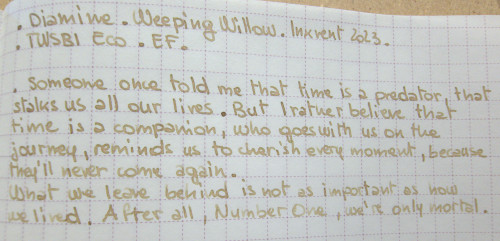 . Diamine . Weeping Willow . Inkvent 2023.
. TWSBI Eco . EF .
. Someone once told me that time is a predator, that
stalks us all our lives . But I rather believe that
time is a companion, who goes with us on the
journey, reminds us to charish every moment, because
they'll never come again.
What we leave behind is not as important as how
we lived. After all, Number One, we're only mortal.